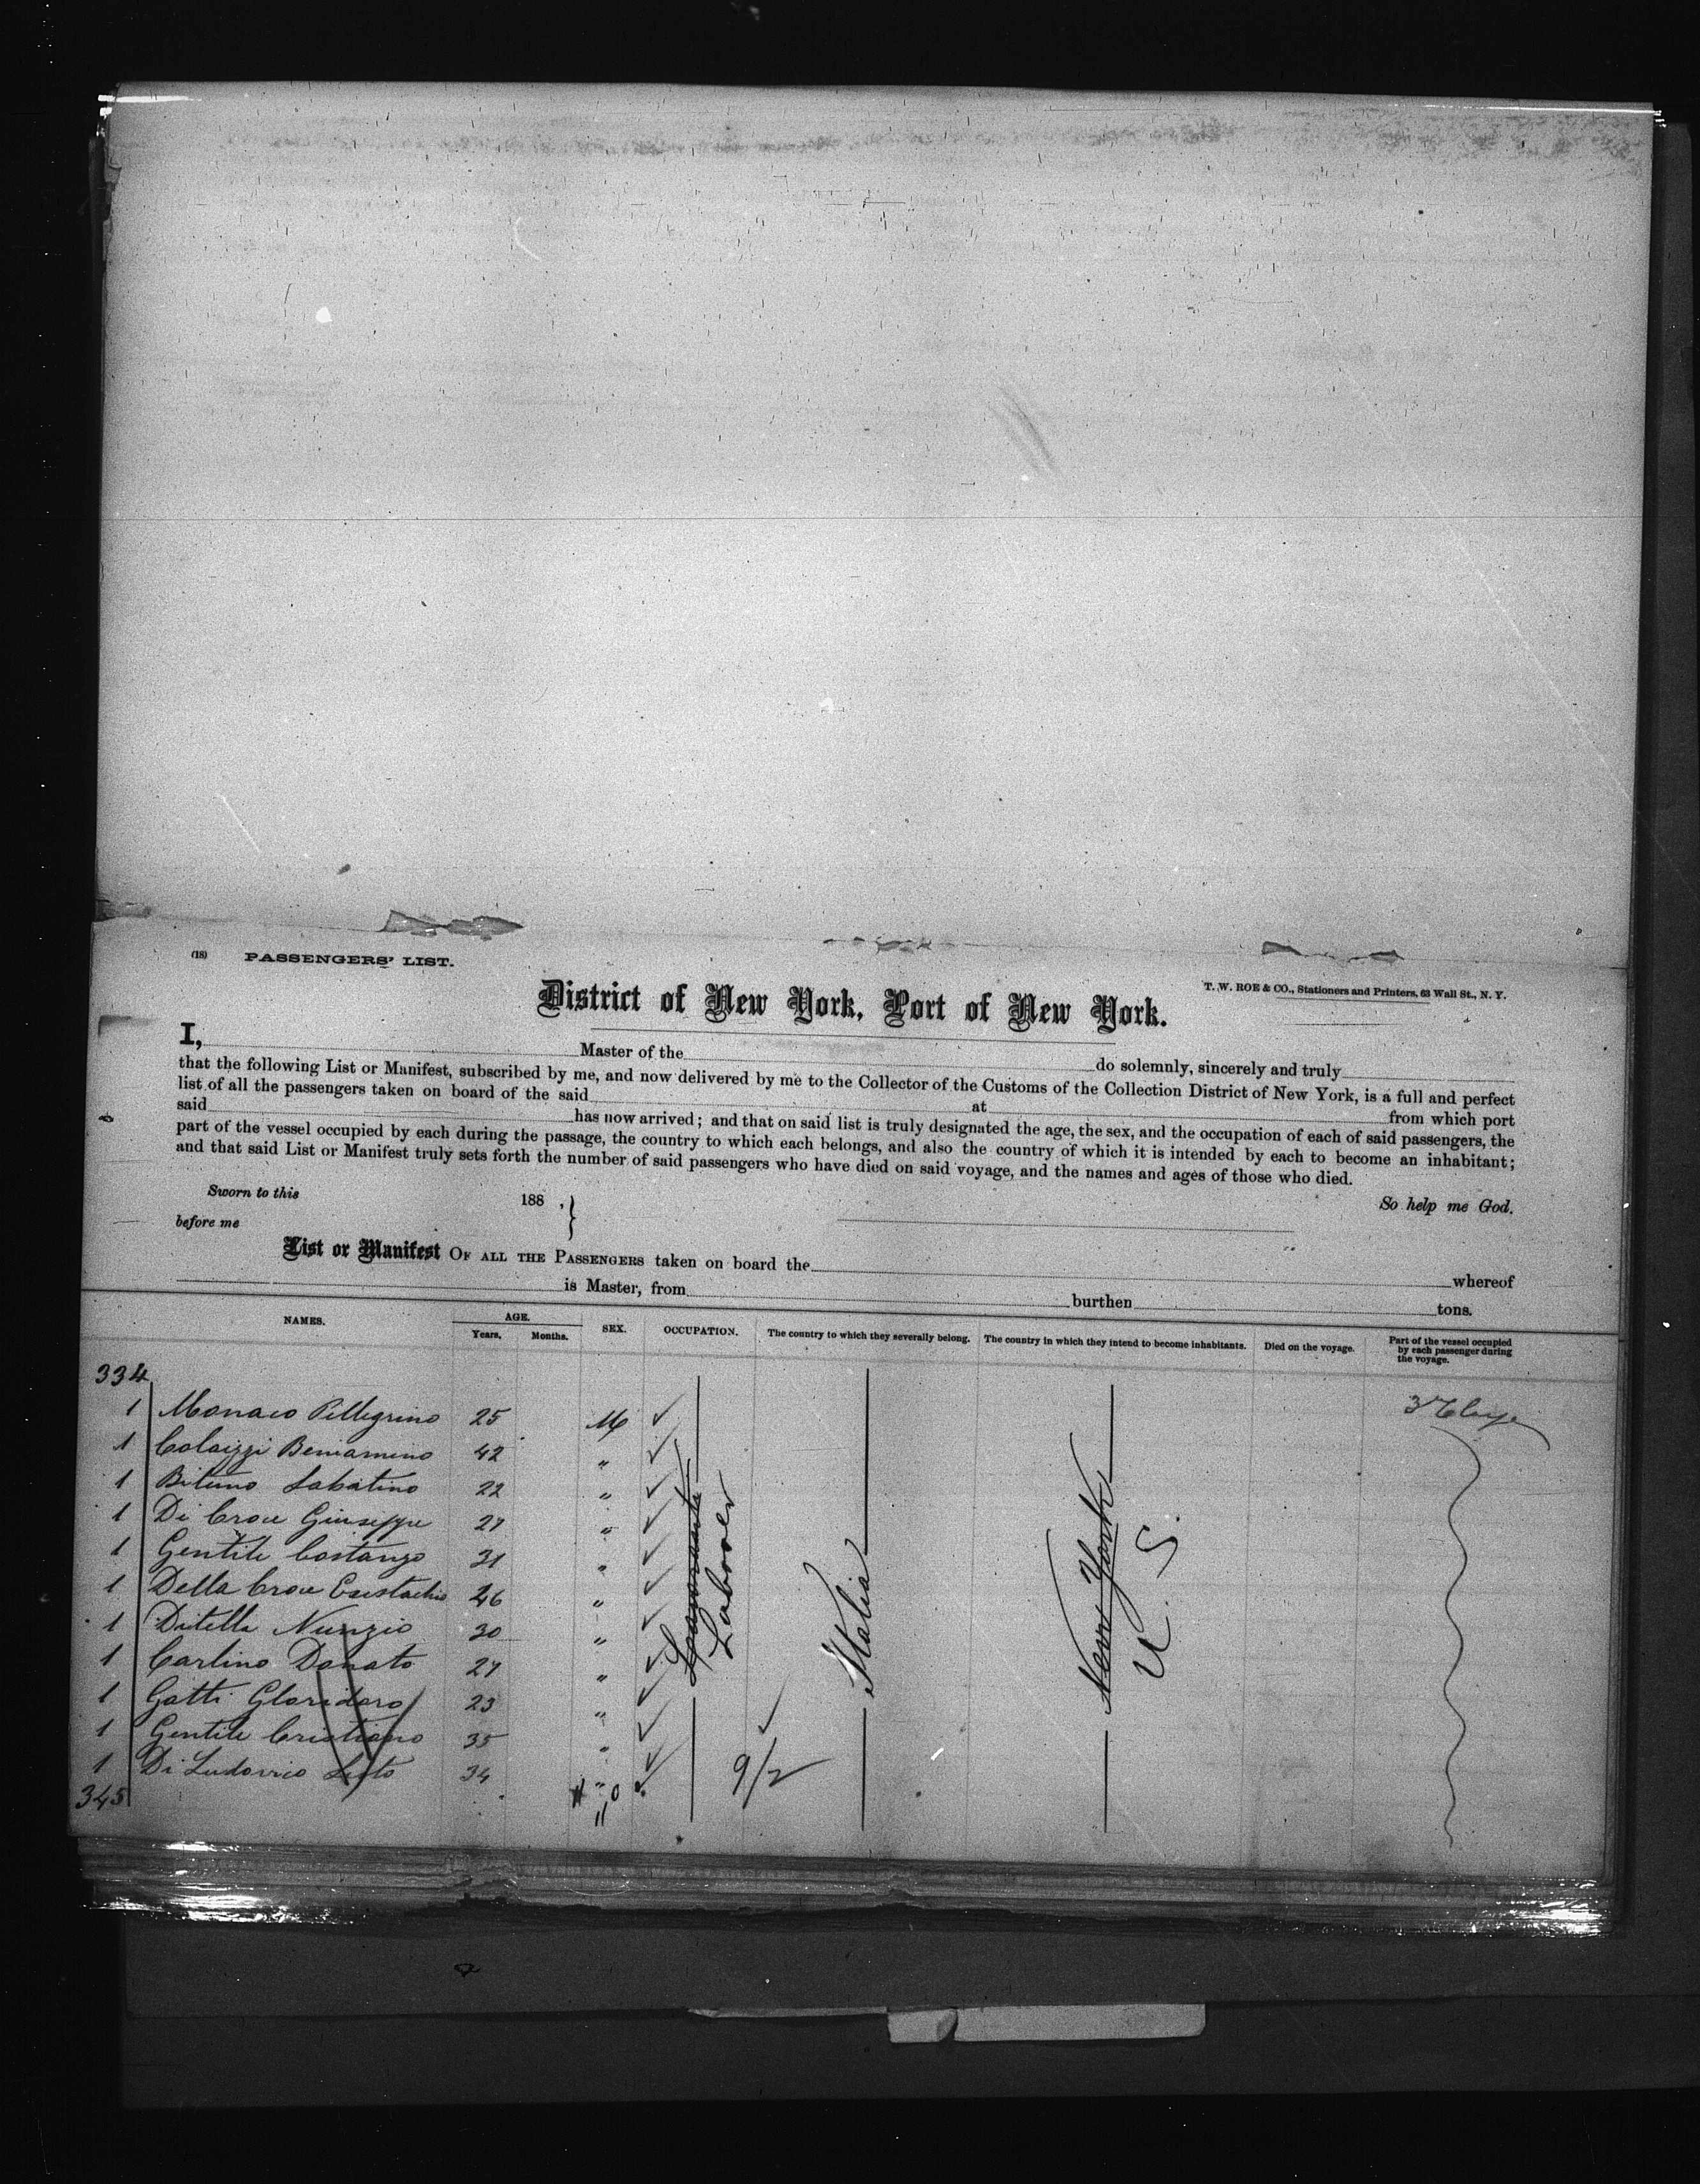 (18) PASSENGERS' LIST.
T. W. ROE & CO., Stationers and Printers, 63 Wall St., N. Y.
District of New York, Port of New York.
I, Master of the do solemnly, sincerely and truly
that the following List or Manifest, subscribed by me, and now delivered by me to the Collector of the Customs of the Collection District of New York, is a full and perfect
list of all the passengers taken on board of the said at from which port
said has now arrived; and that on said list is truly designated the age, the sex, and the occupation of each of said passengers, the
part of the vessel occupied by each during the passage, the country to which each belongs, and also the country of which it is intended by each to become an inhabitant;
and that said List or Manifest truly sets forth the number of said passengers who have died on said voyage, and the names and ages of those who died.
Sworn to this 188 , So help me God.
before me
List or Manifest OF ALL THE PASSENGERS taken on board the whereof
is Master, from burthen tons.
NAMES. AGE. Years. Months. SEX. OCCUPATION. The country to which they severally belong. The country in which they intend to become inhabitants. Died on the voyage. Part of the vessel occupied by each passenger during the voyage.
334
1 Monaco Pellegrino 25 M
1 Colaizzi Beniamino 42 "
1 Sabatino 22 "
1 Di Croce Giuseppe 27 "
1 Gentile Costanzo 31 "
1 Della Croce Eustachio 26 "
1 Ditella Nunzio 30 "
1 Carlino Donato 27 "
1 Gatti Gloridoro 23 "
1 Gentile Cristiano 35 "
1 Di Ludovico Sisto 34 "
345
Laborer
9/2
Italia
New York
U. S.